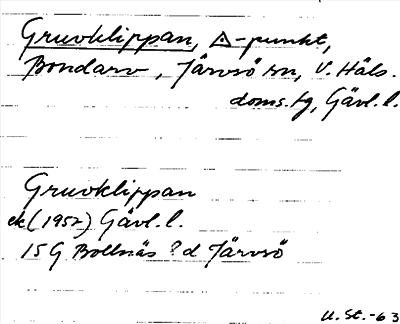 Gruvklippan, △-punkt,
Bondarv, Järvsö sn, V. Häls.
doms. tg, Gävl. l.
Gruvklippan
ek (1952) Gävl. l.
15G Bollnäs ? d Järvsö
U. St. -63